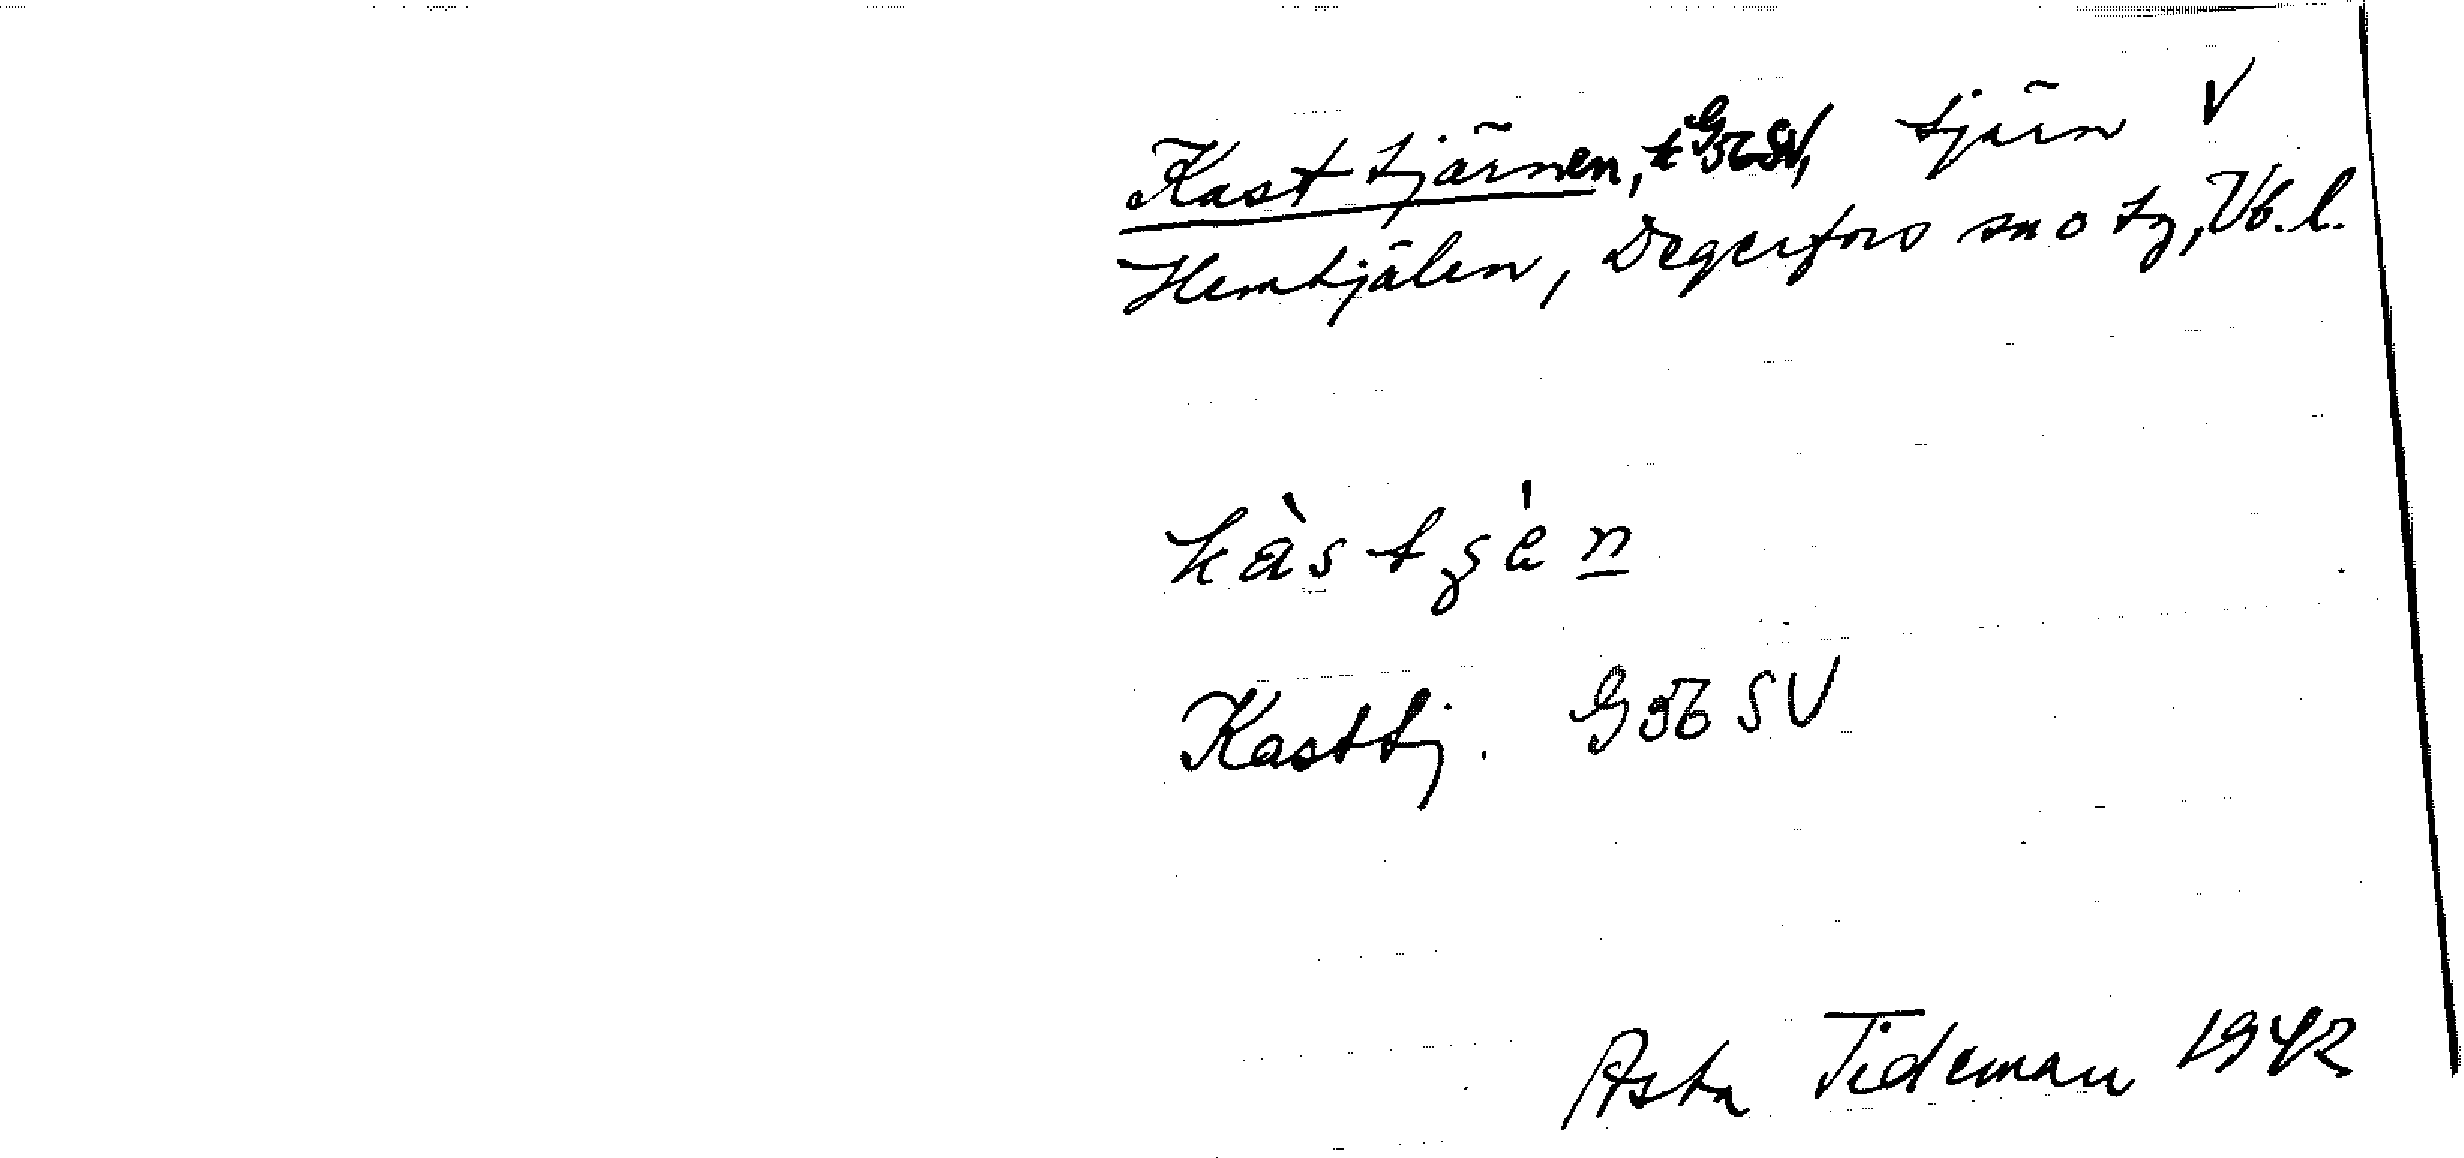 Kasttjärnen, G56SV, tjärn V
Hemtjälen, Degerfors sn o tg, Vb. l.
kàstʒén
Kasttj. G56 SV
Asta Tideman 1942